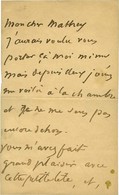 Mon cher Mathey
J'aurais voulu vous
porter ça moi même
mais depuis deux jours
me voilà à la chambre
et je ne me suis pas
encore dehors.
vous m'avez fait
grand plaisir avec
cette petite lite, et,